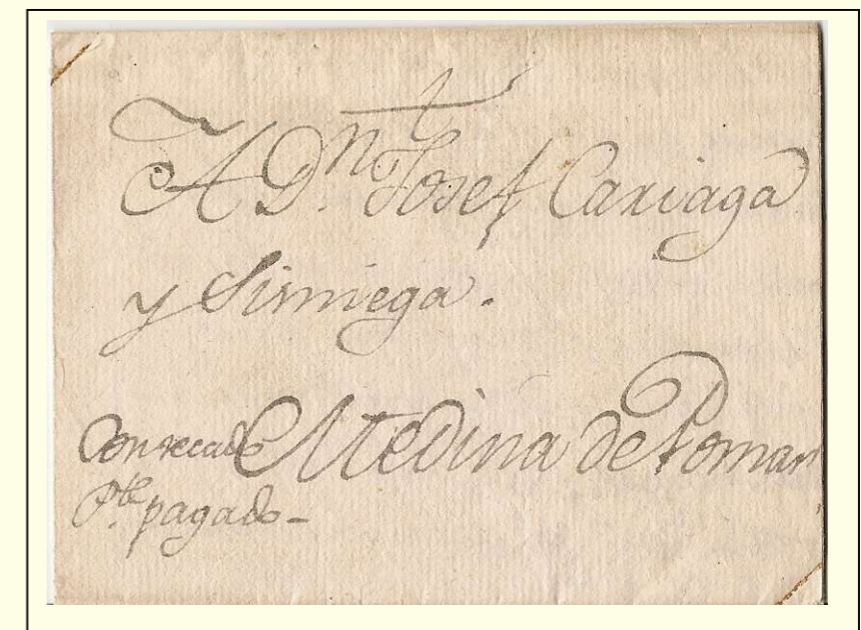 A Dn. Josef Cariaga
y Sirmiega.
Con recado Medina de Pomar
Pte. pagado-